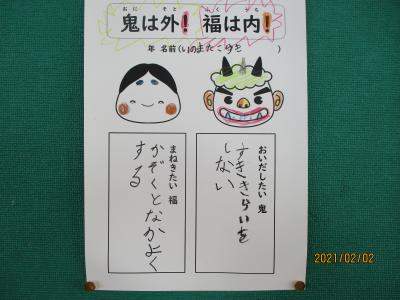 鬼は外！福は内！
年 名前（いのまたこうき）
おいだしたい 鬼
すききらいを
しない
まねきたい 福
かぞくとなかよく
する
2021/02/02